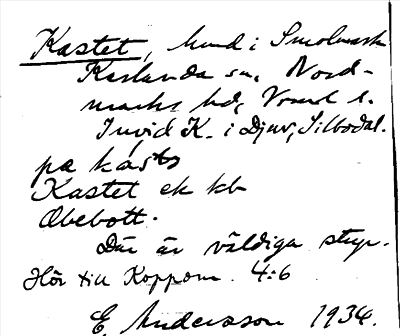 Kastet, hund i Smolmark
Karlanda sn, Nord-
marks hd, Vrml l.
Invid K. i Djuv, Silbodal.
på kásts
Kastet ek kb
Obebott.
Där är väldiga stup.
Hör till Koppom. 4:6
E. Andersson 1934.